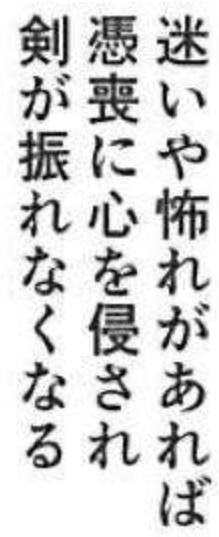 迷いや怖れがあれば
憑喪に心を侵され
剣が振れなくなる